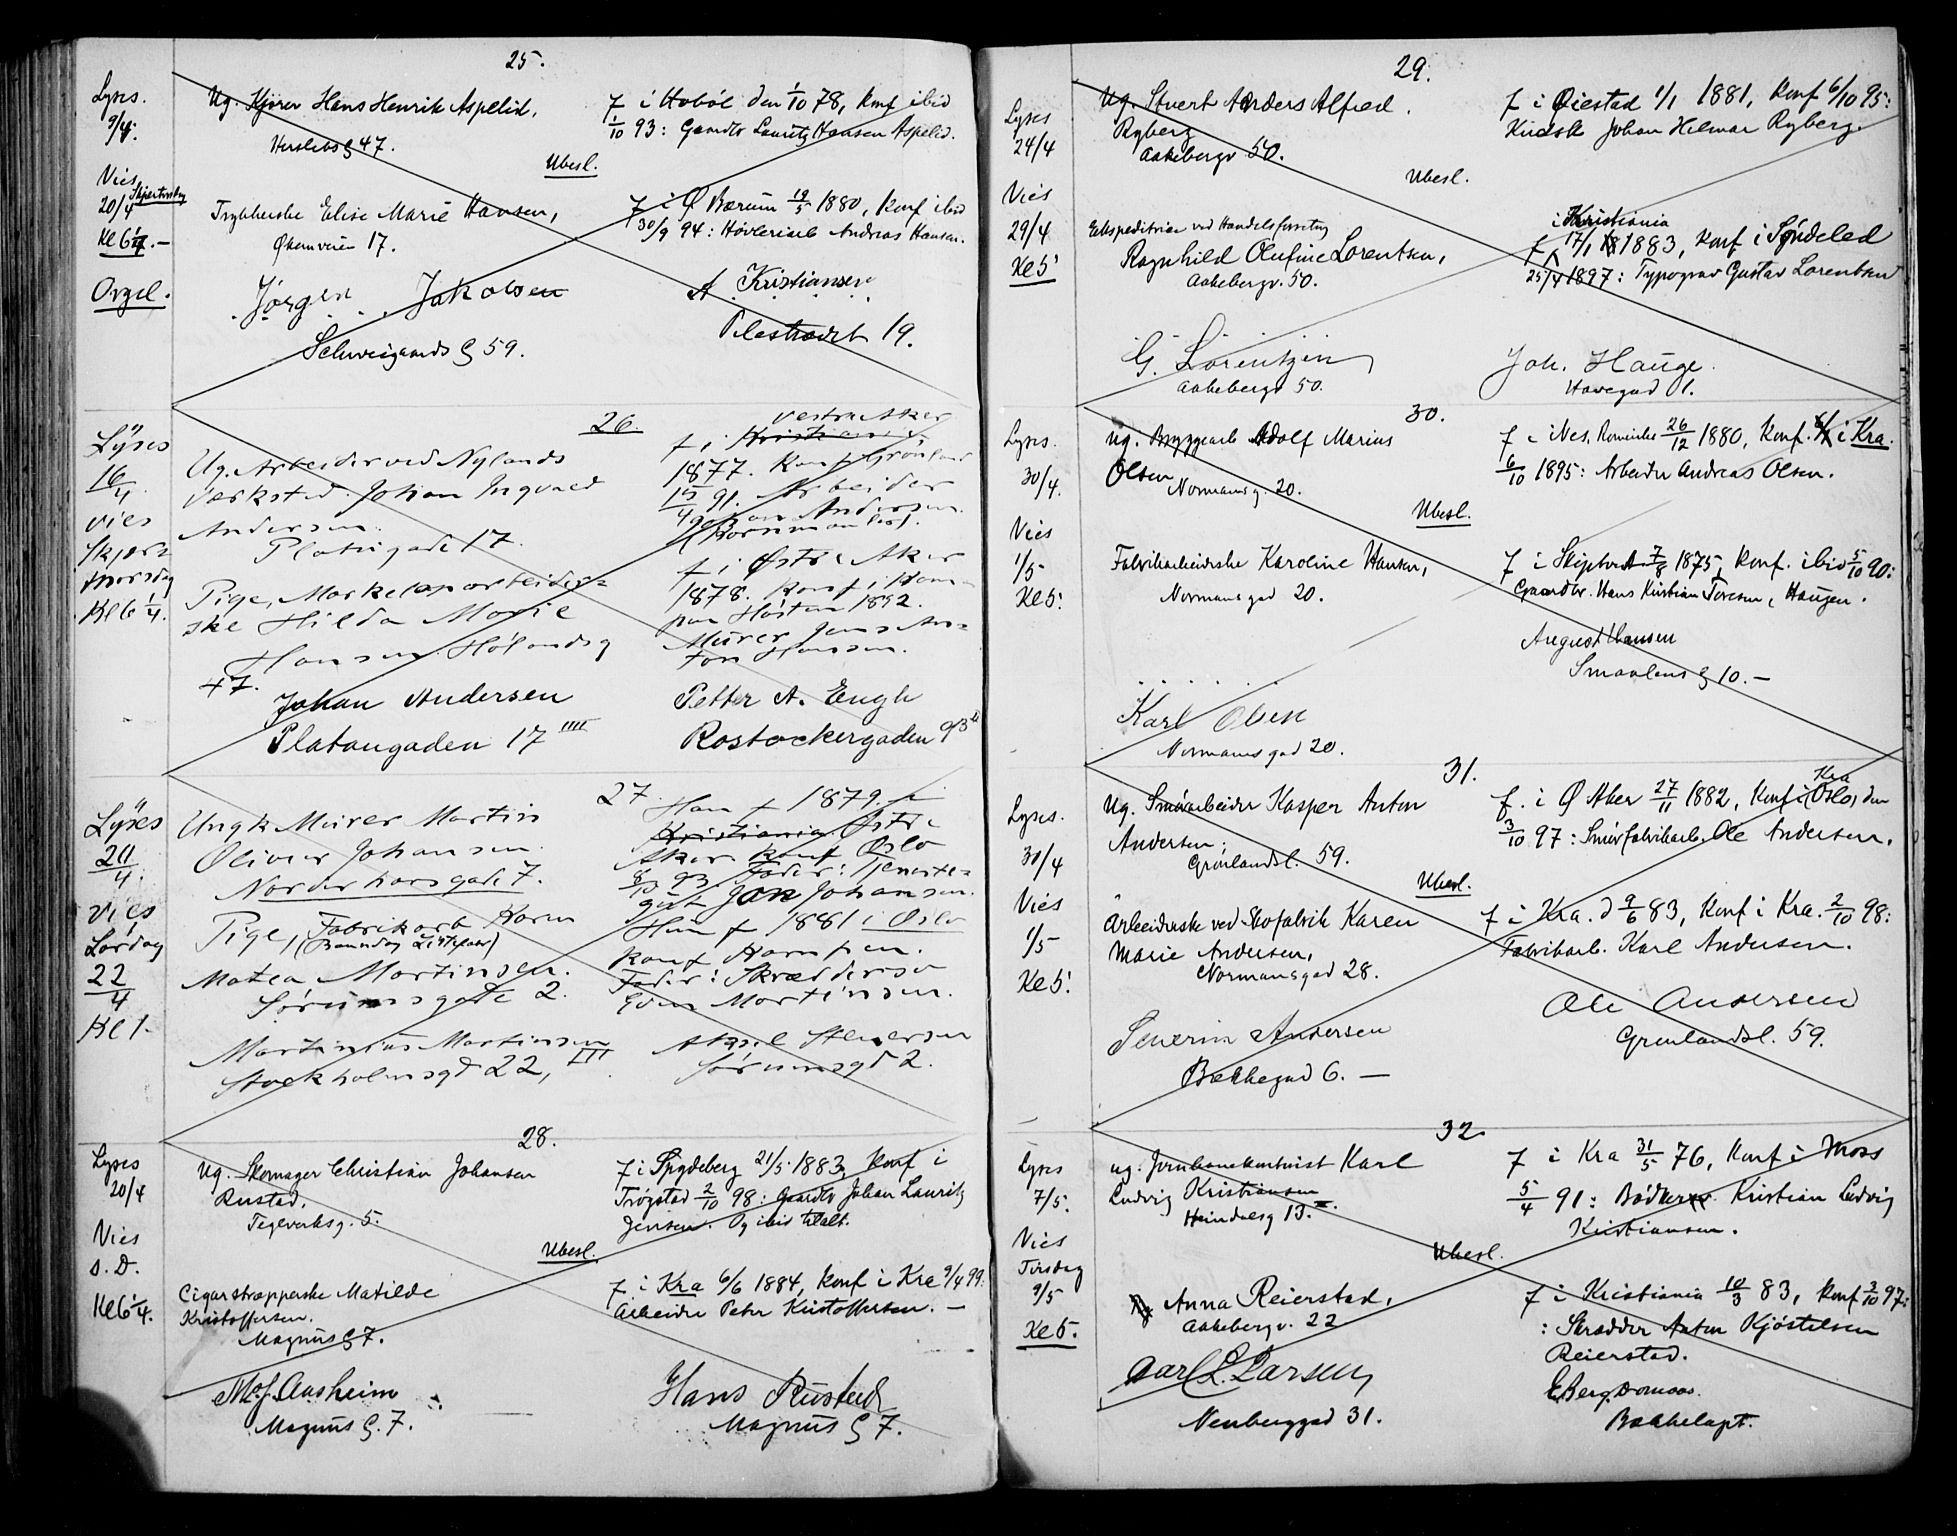 25.
Lyses.
3/4.
Ug. Kjører Hans Henrik Aspelid,
Herslebs g 47.
f i Hobøl den 1/10 78, konf ibid
1/10 93: Gaardbr Lauritz Hansen Aspelid.
Ubesl.
Vies
Skjærtorsdag
20/4
Kl 6 1/4.—
Orgel.
Trykkerske Elise Marie Hansen,
Økernveien 17.
f i Ø Bærum 19/5 1880, konf ibid
30/9 94: Høvleriarb Andreas Hansen.
Jørgen Jakobsen
Schweigaards g 59.
A Kristiansen
Pilestrædet 19.
26.
Lyses
16/4.
vies
Skjær
thorsdag
Kl 6 1/4.
Ug. Arbeider ved Nylands
Værksted Johan Ingvald
Andersen.
Platougade 17.
f i Kristiania, Vestre Aker
1877. Konf Grønland
15/4 91. Arbeider
Andersen.
Pige, Markelsparbeider=
ske Hilda Marie
Hansen. Hølandsg
47.
f i Østre Aker
1878. Konf i
paa Høsten 1892.
Murer Jens An=
ton Hansen.
Johan Andersen
Platougaden 17 IIII
Petter A. Engh
Rostockergaden 93
27.
Lyses
20/4.
vies
Lørdag
22/4
Kl 1.
Ungk. Murer Martin
Oliver Johansen.
Norderhovsgade 7.
Han f 1879. i
Kristiania Østre
Aker konf Oslo
8/10 93. Fader: Tjeneste=
gut Jan Johansen.
Pige, Fabrikarb Karen
Matea Martinsen.
Sørumsgade 2.
Hun f 1881 i Oslo
konf Kampen.
Fader: Skrædersv
Even Martinsen.
Martinius Martinsen
Stockholmsgd 22, III
Aksel Stenersen
Sørumsgd 2.
28.
Lyses
20/4
Vies
s. D.
Kl 6 1/4.
Ug. Skomager Christian Johansen
Rustad,
Teglverksg. 5.
f i Spydeberg 21/5 1883, konf i
Trøgstad 2/10 98: Gaardbr Johan Lauritz
Jensen. Og ibid tilalt.
Ubesl.
Cigarstrapperske Matilde
Kristoffersen.
Magnus g 7.
f i Kra 6/6 1884, konf i Kra 9/4 99:
Arbeider Peter Kristoffersen. —
M. J. Aasheim
Magnus g. 7.
Hans Rustad
Magnus g 7.
29.
Lyses
24/4
Vies
29/4
Kl 5
Ug. Stuert Anders Alfred
Ryberg
Aakebergv 50.
f i Øiestad 1/1 1881, konf 6/10 95:
Kudsk Johan Hilmar Ryberg.
Ubesl.
Ekspeditrice ved Handelsforretng
Ragnhild Olufine Lorentsen,
Aakebergv. 50.
i Kristiania
f 17/1 1883, konf i Søndeled
25/4 1897: Typograv Gustav Lorentsen
G. Lorentzen
Aakebergv 50.
Joh. Hauge.
Havegad 1.
30.
Lyses.
30/4.
Vies
1/5
Kl 5.
Ug. Bryggearb Adolf Marius
Olsen
Normansg. 20.
f i Nes, Romerike 26/12 1880, konf. i Kra.
6/10 1895: Arbeider Andreas Olsen.
Ubesl.
Fabrikarbeiderske Karoline Hansen,
Normansgad 20.
f i Skiptvedt 7/8 1875, konf. ibid 5/10 90:
Gaardbr. Hans Kristian Toresen, Haugen.
Karl Olsen
Normansgad 20.
August Hansen
Smaalens g 10.—
31.
Lyses.
30/4
Vies
1/5
Kl 5.
Ug. Smørarbeider Kasper Anton
Andersen,
Grønlandsl. 59.
f. i Ø Aker 27/11 1882, konf i Oslo, Kra den
3/10 97: Smørfabrikarb. Ole Andersen.
Ubesl.
Arbeiderske ved Skofabrik Karen
Marie Andersen,
Normansgad 28.
f i Kra. d 9/6 83, konf i Kra. 2/10 98:
Fabrikarb. Karl Andersen.
Severin Andersen
Bakkegad 6. —
Ole Andersen
Grønlandsl. 59.
32
Lyses
7/5.
Vies
Tirsdag
9/5
Kl 5.
Ug. Jernbanekontorist Karl
Ludvig Kristiansen
Heimdalsg 13.
f i Kra 31/5 76, konf i Moss
5/4 91: Bødker Kristian Ludvig
Kristiansen.
Ubesl.
Anna Reierstad,
Aakebergv. 22
f i Kristiania 10/3 83, konf 3/10 97:
: Skrædder Anton Kjøstelsen
Reierstad.
Carl L. Larsen
Neuberggad 31.
E Berg Domaas.
Bakkelagt.